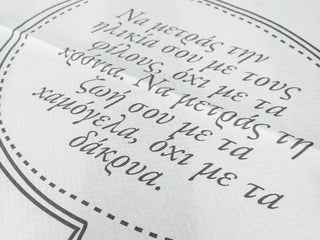 Να μετράς την
ηλικία σου με τους
φίλους, όχι με τα
χρόνια. Να μετράς τη
ζωή σου με τα
χαμόγελα, όχι με τα
δάκρυα.